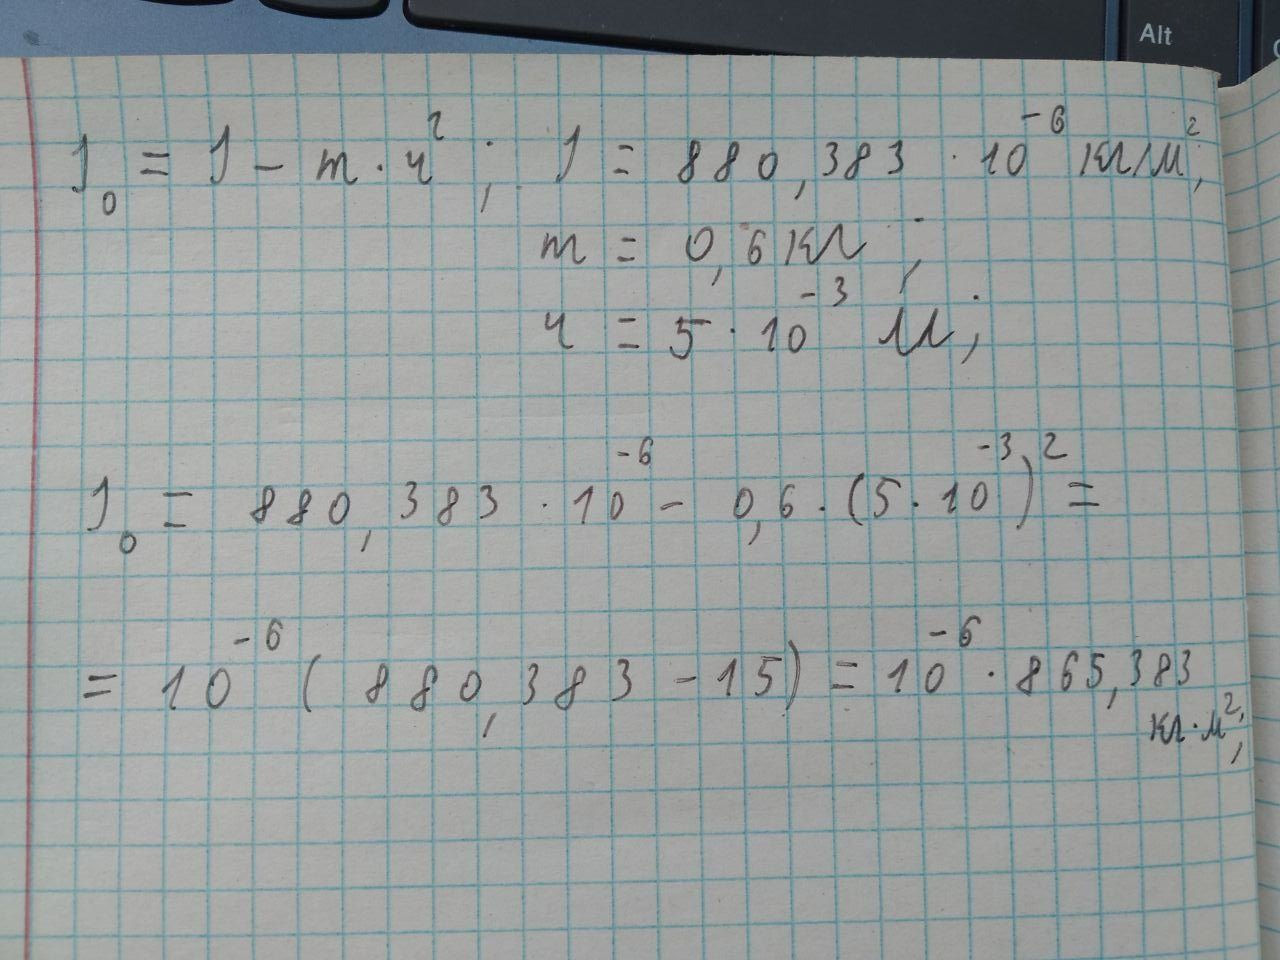 Alt
J₀ = J - m · r²; J = 880,383 · 10⁻⁶ кг/м²;
m = 0,6 кг;
r = 5 · 10⁻³ м;
J₀ = 880,383 · 10⁻⁶ - 0,6 · (5 · 10⁻³)² =
= 10⁻⁶ (880,383 - 15) = 10⁻⁶ · 865,383
кг · м²;